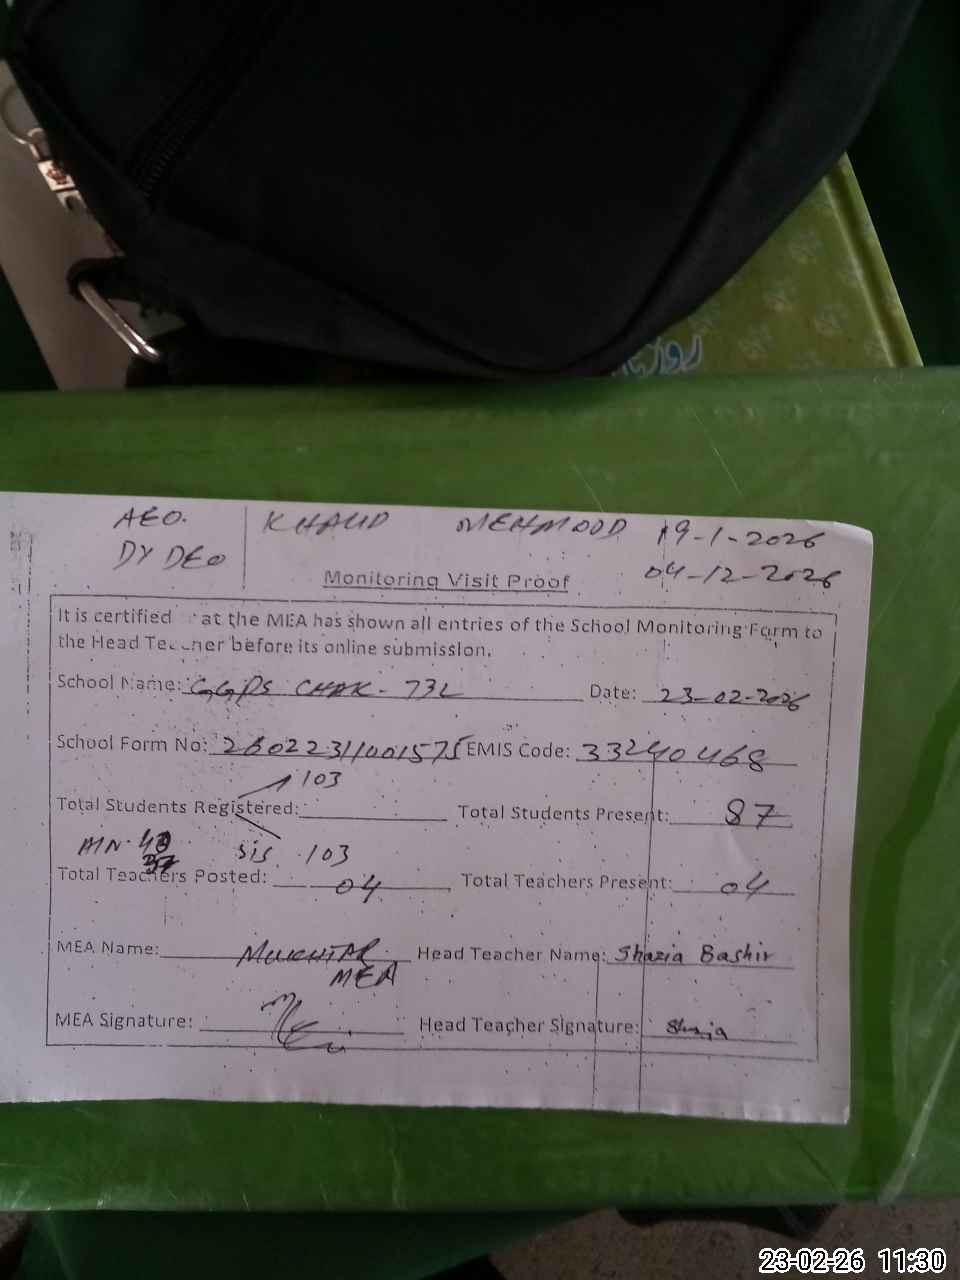 AEO. KHALID MEHMOOD 19-1-2026
DY DEO 04-12-2026
Monitoring Visit Proof
It is certified at the MEA has shown all entries of the School Monitoring Form to
the Head Teacher before its online submission.
School Name: GGPS CHAK-73L Date: 23-02-2026
School Form No: 26022311001575 EMIS Code: 33240468
103
Total Students Registered: Total Students Present: 87
MN. sis 103
Total Teachers Posted: 04 Total Teachers Present: 04
MEA Name: MUKHTAR Head Teacher Name: Shazia Bashir
MEA
MEA Signature: Head Teacher Signature: Shazia
23-02-26 11:30